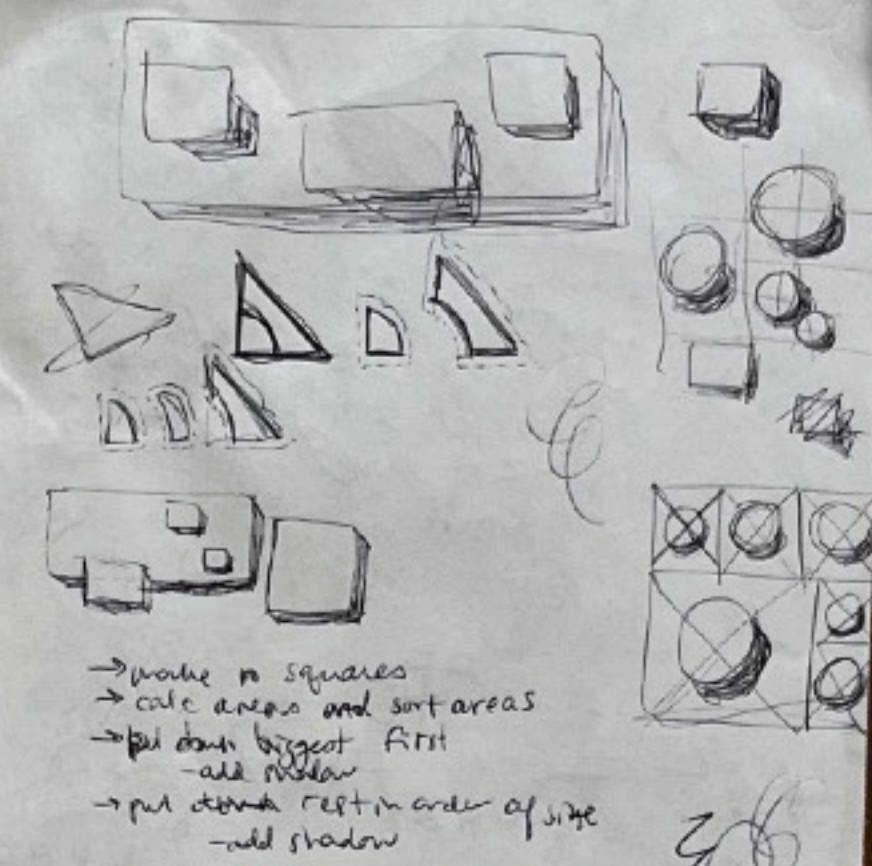 → make n squares
→ calc areas and sort areas
→ put down biggest first
- add shadow
→ put down rest in order of size
- add shadow